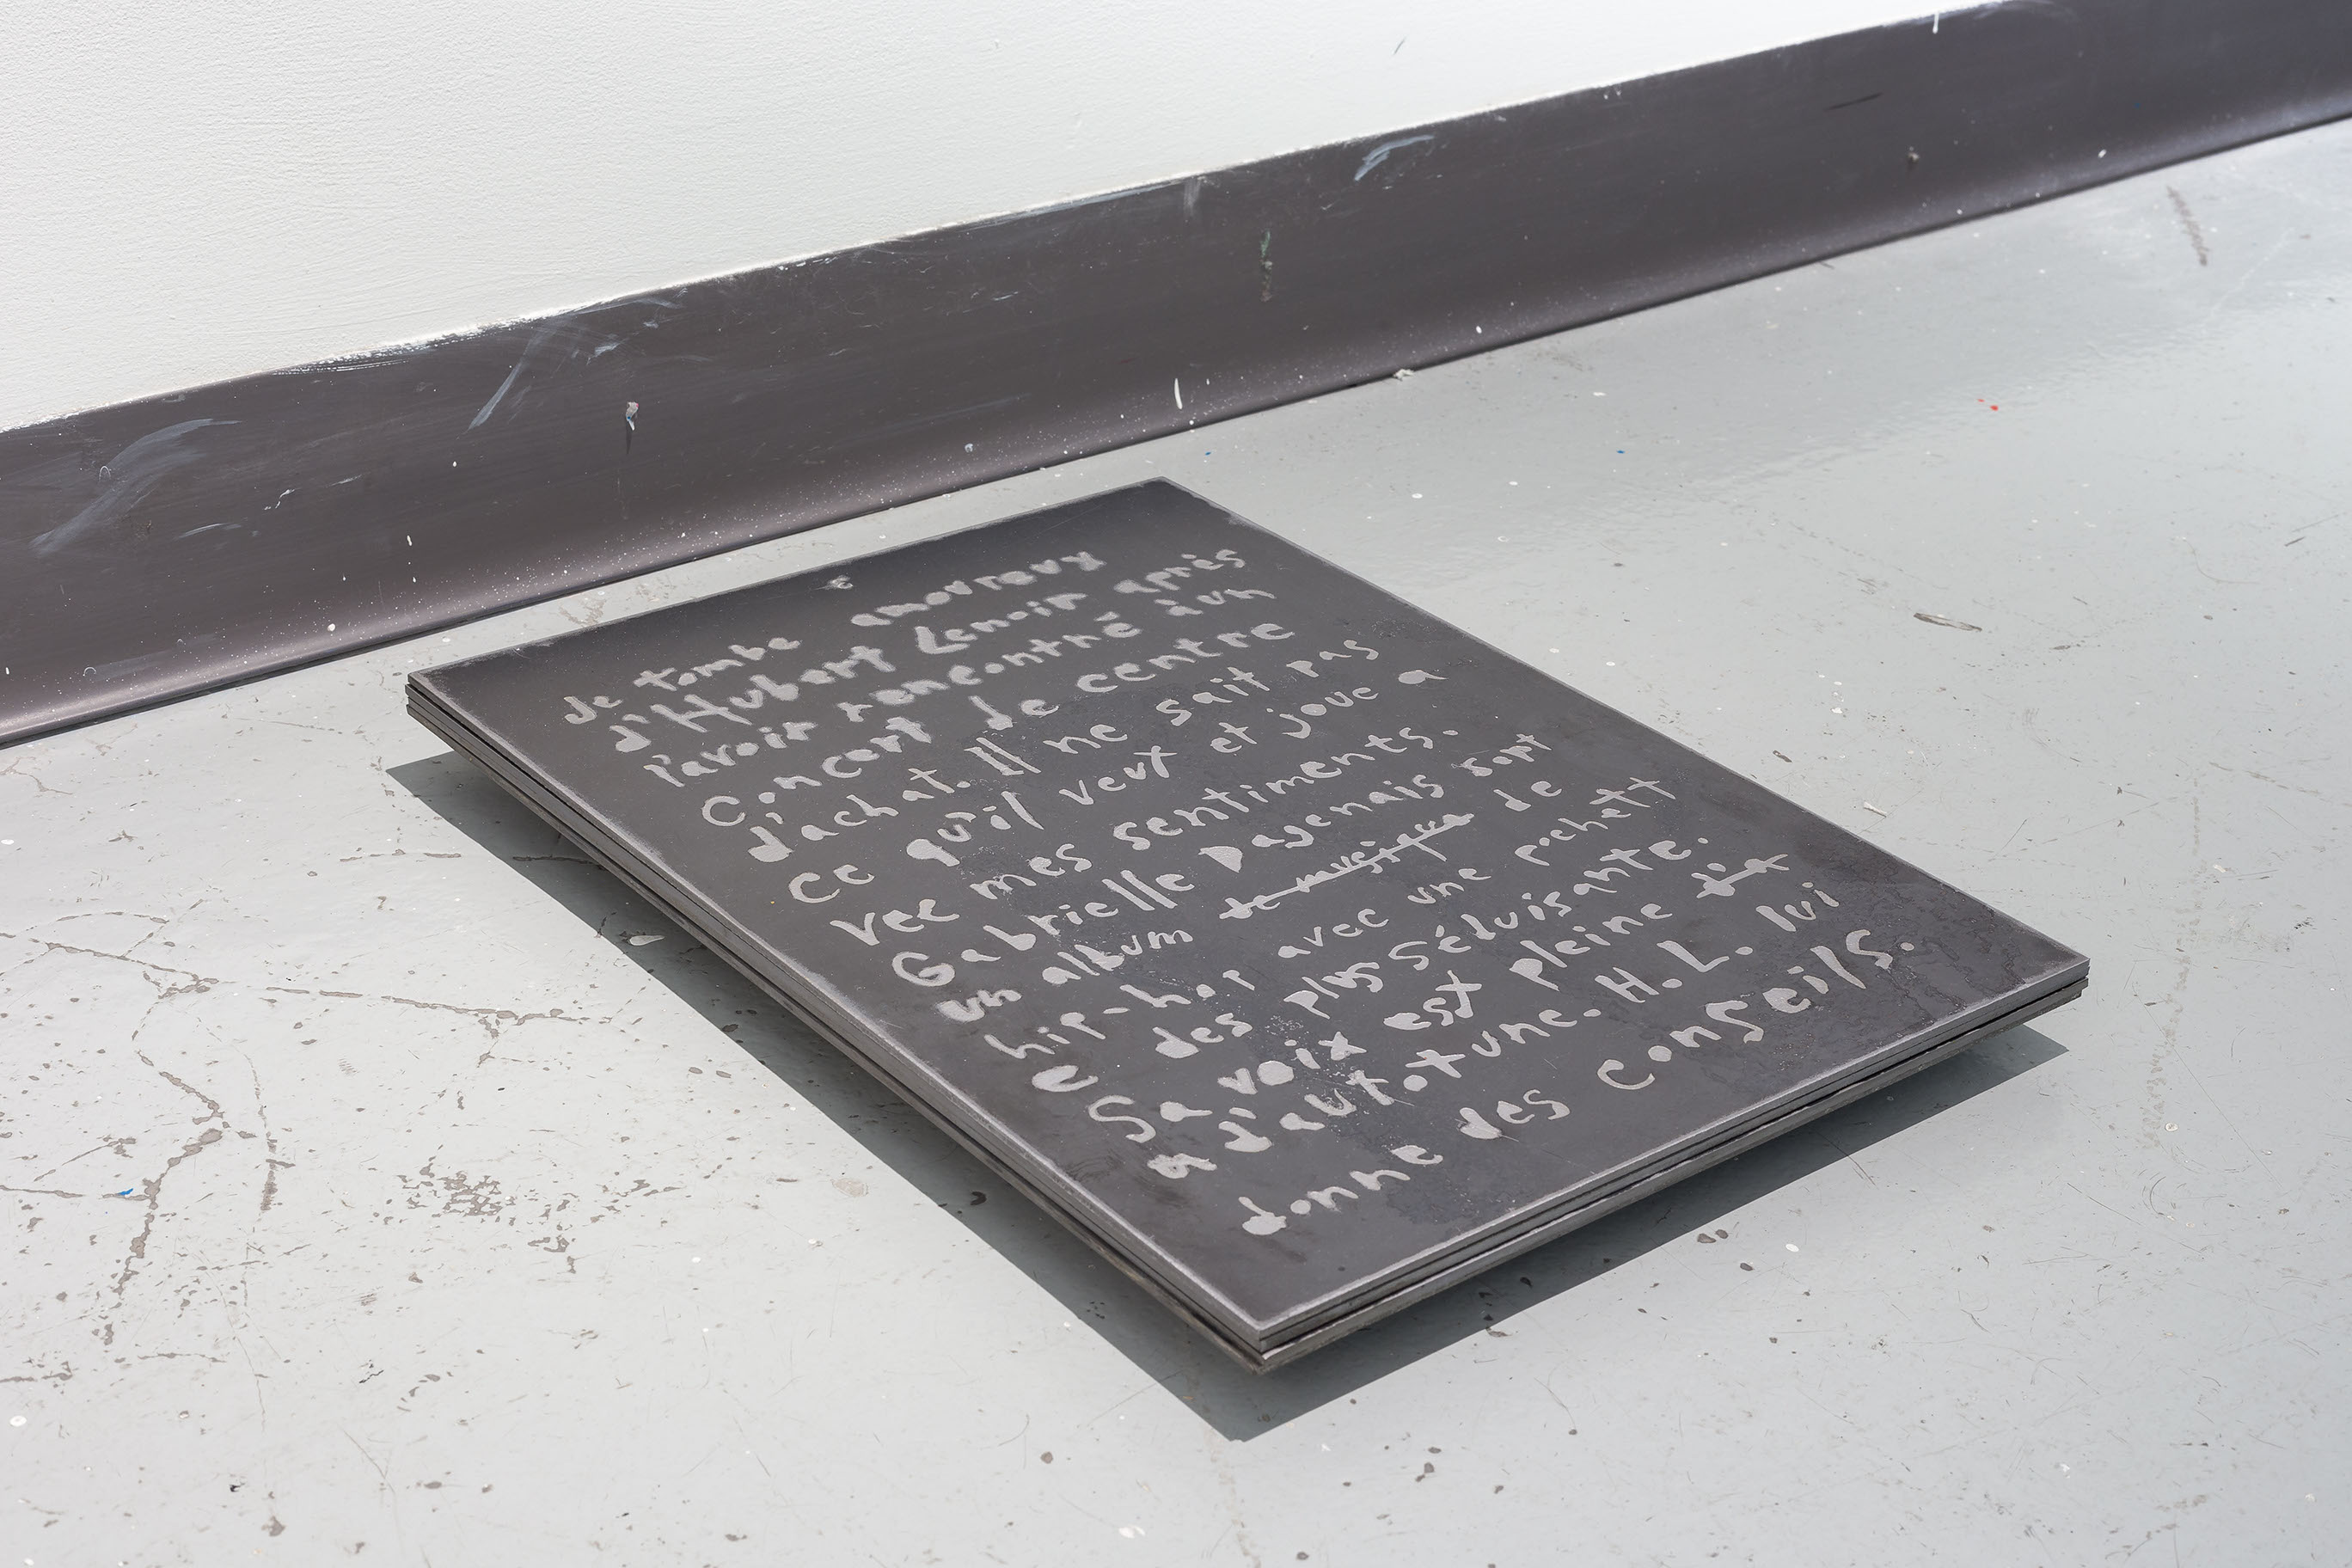 Je tombe amoureux
d'Hubert Lenoir après
l'avoir rencontré à un
Concert de centre
d'achat. Il ne sait pas
ce qu'il veux et joue a
vec mes sentiments.
Gabrielle Dagenais sort
un album de musique de
hip-hop avec une pochett
e des plus séduisante.
Sa voix est pleine
d'autotune. H.L. lui
a donne des conseils.